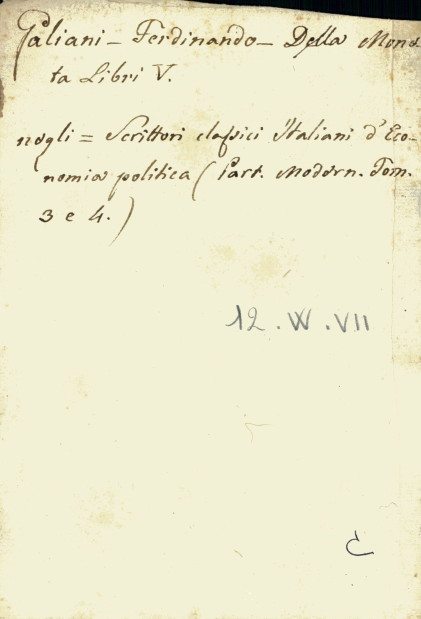 Galiani – Ferdinando – Della Mone
ta Libri V.
negli = Scrittori classici Italiani d'Eco-
nomia politica (Part. Modern. Tom.
3 e 4.)
12.W.VII